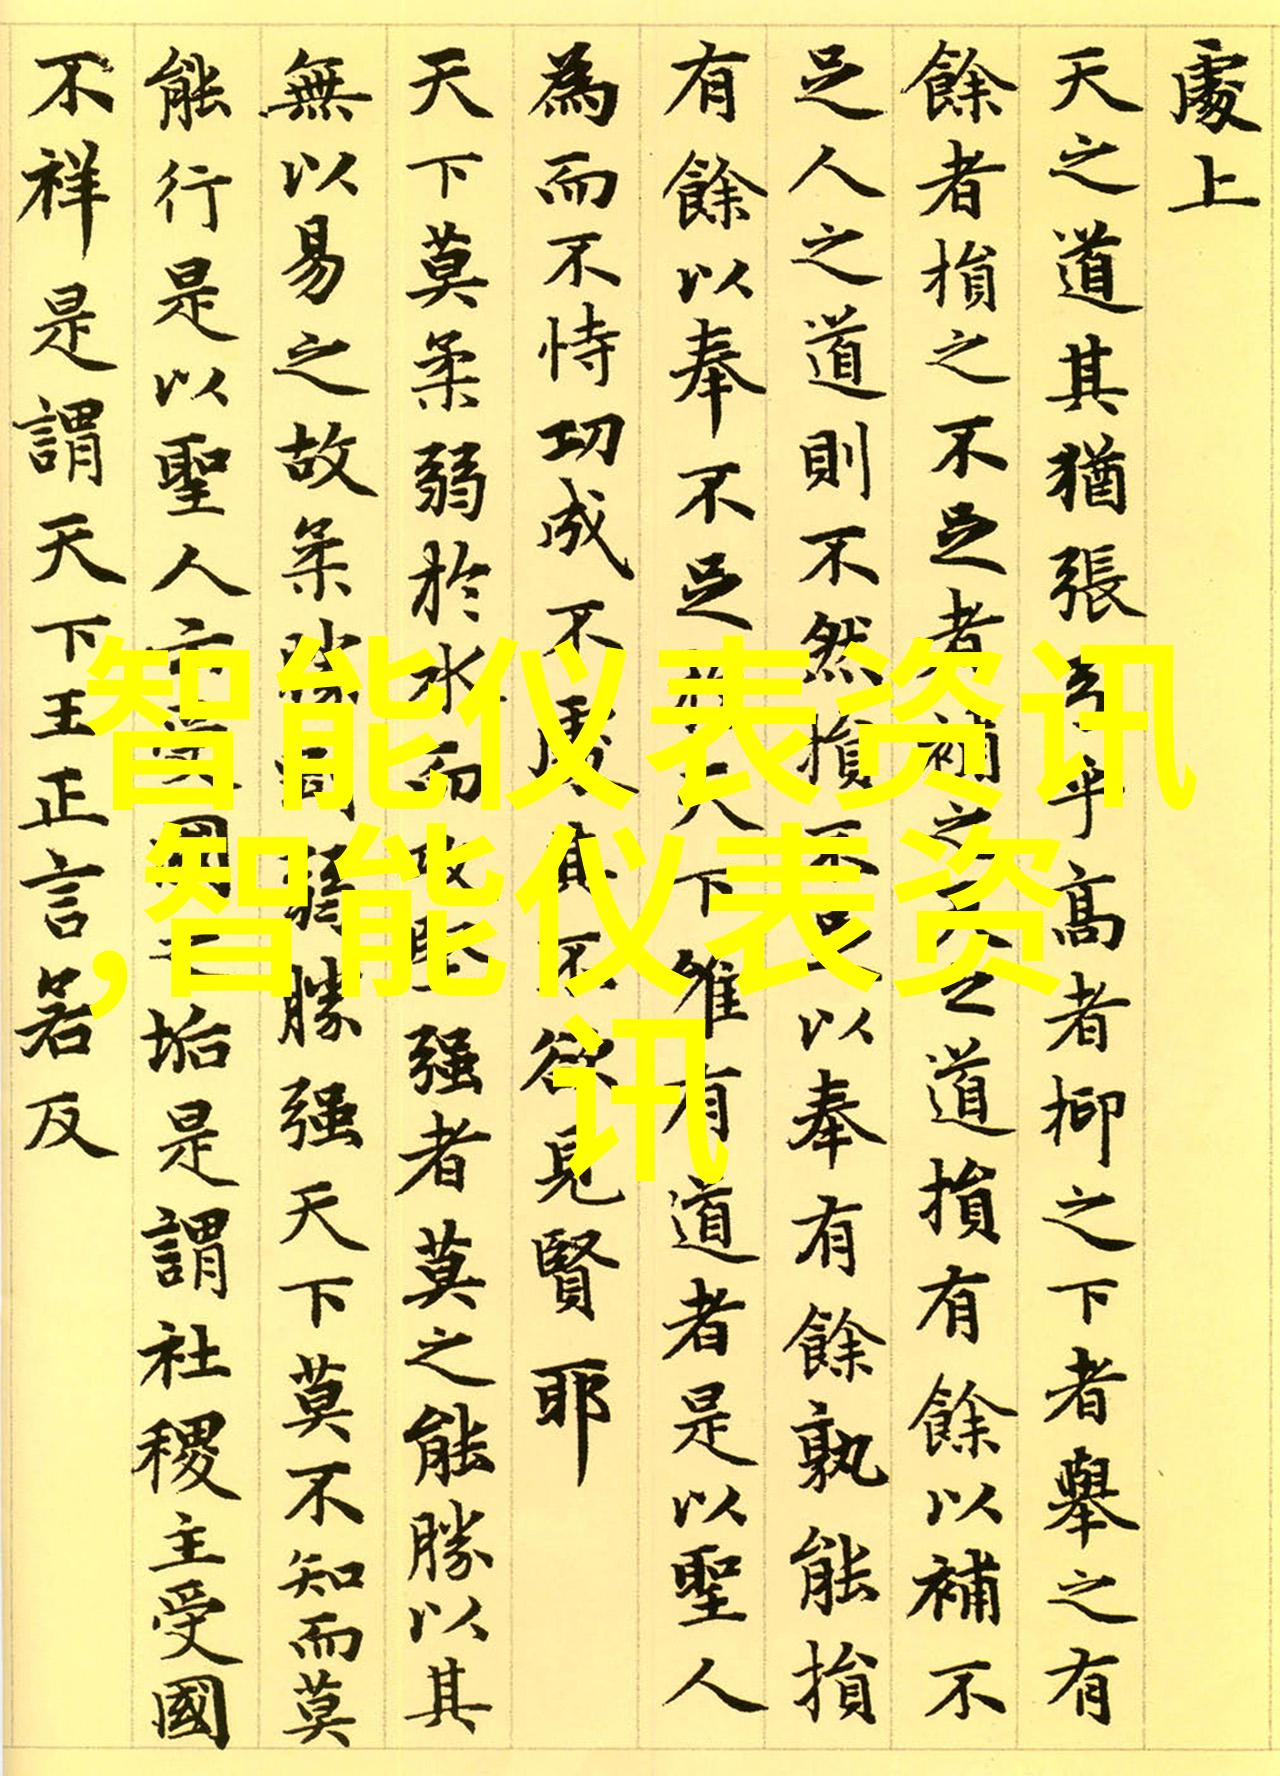 處上
天之道其猶張弓乎高者抑之下者舉之有
餘者損之不足者補之天之道損有餘以補不
足人之道則不然損不足以奉有餘孰能損
有餘以奉不足於天下唯有道者是以聖人
為而不恃功成不處其不欲見賢耶
天下莫柔弱於水而攻堅强者莫之能勝以其
無以易之故柔勝剛弱勝强天下莫不知而莫
能行是以聖人云受國之垢是謂社稷主受國
不祥是謂天下王正言若反
智能仪表资讯
,智能仪表资
讯